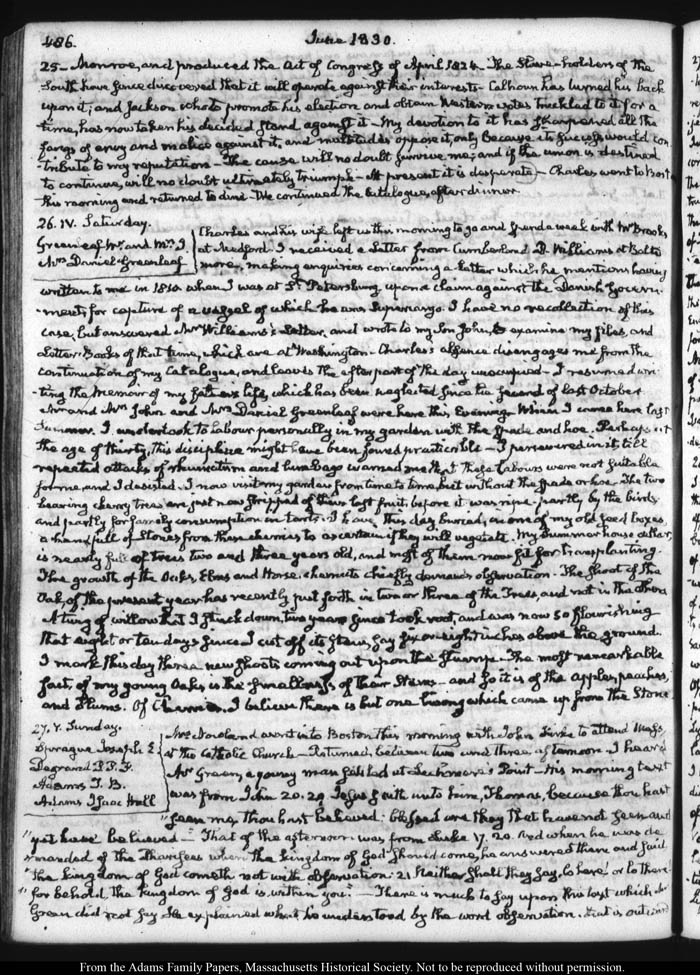 486.
June 1830.
25 — Monroe, and produced the Act of Congress of April 1824. The Slave-holders of the
South have since discovered that it will operate against their interests — Calhoun has turned his back
upon it; and Jackson who to promote his election and obtain Western votes truckled to it for a
time, has now taken his decided stand against it — My devotion to it has sharpened all the
fangs of envy and malice against it, and multitudes oppose it, only because its success would con
-tribute to my reputation — The cause will no doubt survive me; and if the union is destined
to continue, will no doubt ultimately triumph — At present it is desperate — Charles went to Bost
this morning and returned to dine. We continued the Catalogue, after dinner.
26. IV. Saturday.
Greenleaf Mr. and Mrs. J.
Mrs Daniel Greenleaf
Charles and his wife left us this morning to go and spend a week with Mr Brooks
at Medford. I received a Letter from Cumberland D. Williams at Balti
more, making enquiries concerning a Letter which he mentions having
written to me in 1810 when I was at St. Petersburg, upon a claim against the Danish Govern-
-ment, for capture of a vessel of which he was Supercargo. I have no recollection of this
case, but answered Mr Williams's Letter, and wrote to my Son John, to examine my files, and
Letter-Books of that time, which are at Washington — Charles's absence disengages me from the
continuation of my Catalogue, and leaves the after part of the day unoccupied — I resumed wri
-ting the Memoir of my father's life, which has been neglected since the second of last October
Mr and Mrs John and Mrs Daniel Greenleaf were here this Evening. When I came here last
Summer, I undertook to labour personally in my garden with the Spade and hoe. Perhaps at
the age of thirty, this discipline might have been found practicable — I persevered in it, till
repeated attacks of rheumatism and lumbago warned me that these labours were not suitable
for me, and I desisted. I now visit my garden from time to time, but without the spade or hoe. The two
bearing cherry trees are just now stripped of their last fruit, before it was ripe, partly by the birds
and partly for family consumption in tarts. I have this day buried, in one of my old seed boxes
a handfull of Stones from these cherries to ascertain if they will vegetate. My Summer house cellar,
is nearly full of trees two and three years old, and most of them now fit for transplanting.
The growth of the Oaks, Elms and Horse-chesnuts chiefly demands observation. The shoot of the
Oak, of the present year has recently put forth in two or three of the Trees, and not in the others
A twig of willow that I stuck down, two years since took root, and was now so flourishing
that eight or ten days since I cut off its stem, say six or eight inches above the ground.
I mark this day three new shoots coming out upon the stump — The most remarkable
fact, of my young Oaks is the smallness of their Stems — and so it is of the apples, peaches,
and Plums. Of I believe there is but one living which came up from the Stone
27. V. Sunday.
Sprague Joseph E.
Degrand P. P. F.
Adams T. B.
Adams Isaac Hull
Mrs Nowland went into Boston this morning with John to attend Mass
at the Catholic Church — Returned, between two and three afternoon. I heard
Mr Green, a young man settled at Lechmere's Point — His morning text
was from John 20. 29 Jesus saith unto him, Thomas, because thou hast
"seen me, thou hast believed: blessed are they that have not seen and
"yet have believed — That of the afternoon was from Luke 17. 20. And when he was de
"manded of the Pharisees when the kingdom of God should come, he answered them and said
"the kingdom of God cometh not with observation: 21 Neither shall they say, lo here! or lo there
"for behold the kingdom of God is within you: — There is much to say upon this text which Mr
Green did not say. He explained what he understood by the word observation, that is outward
From the Adams Family Papers, Massachusetts Historical Society. Not to be reproduced without permission.